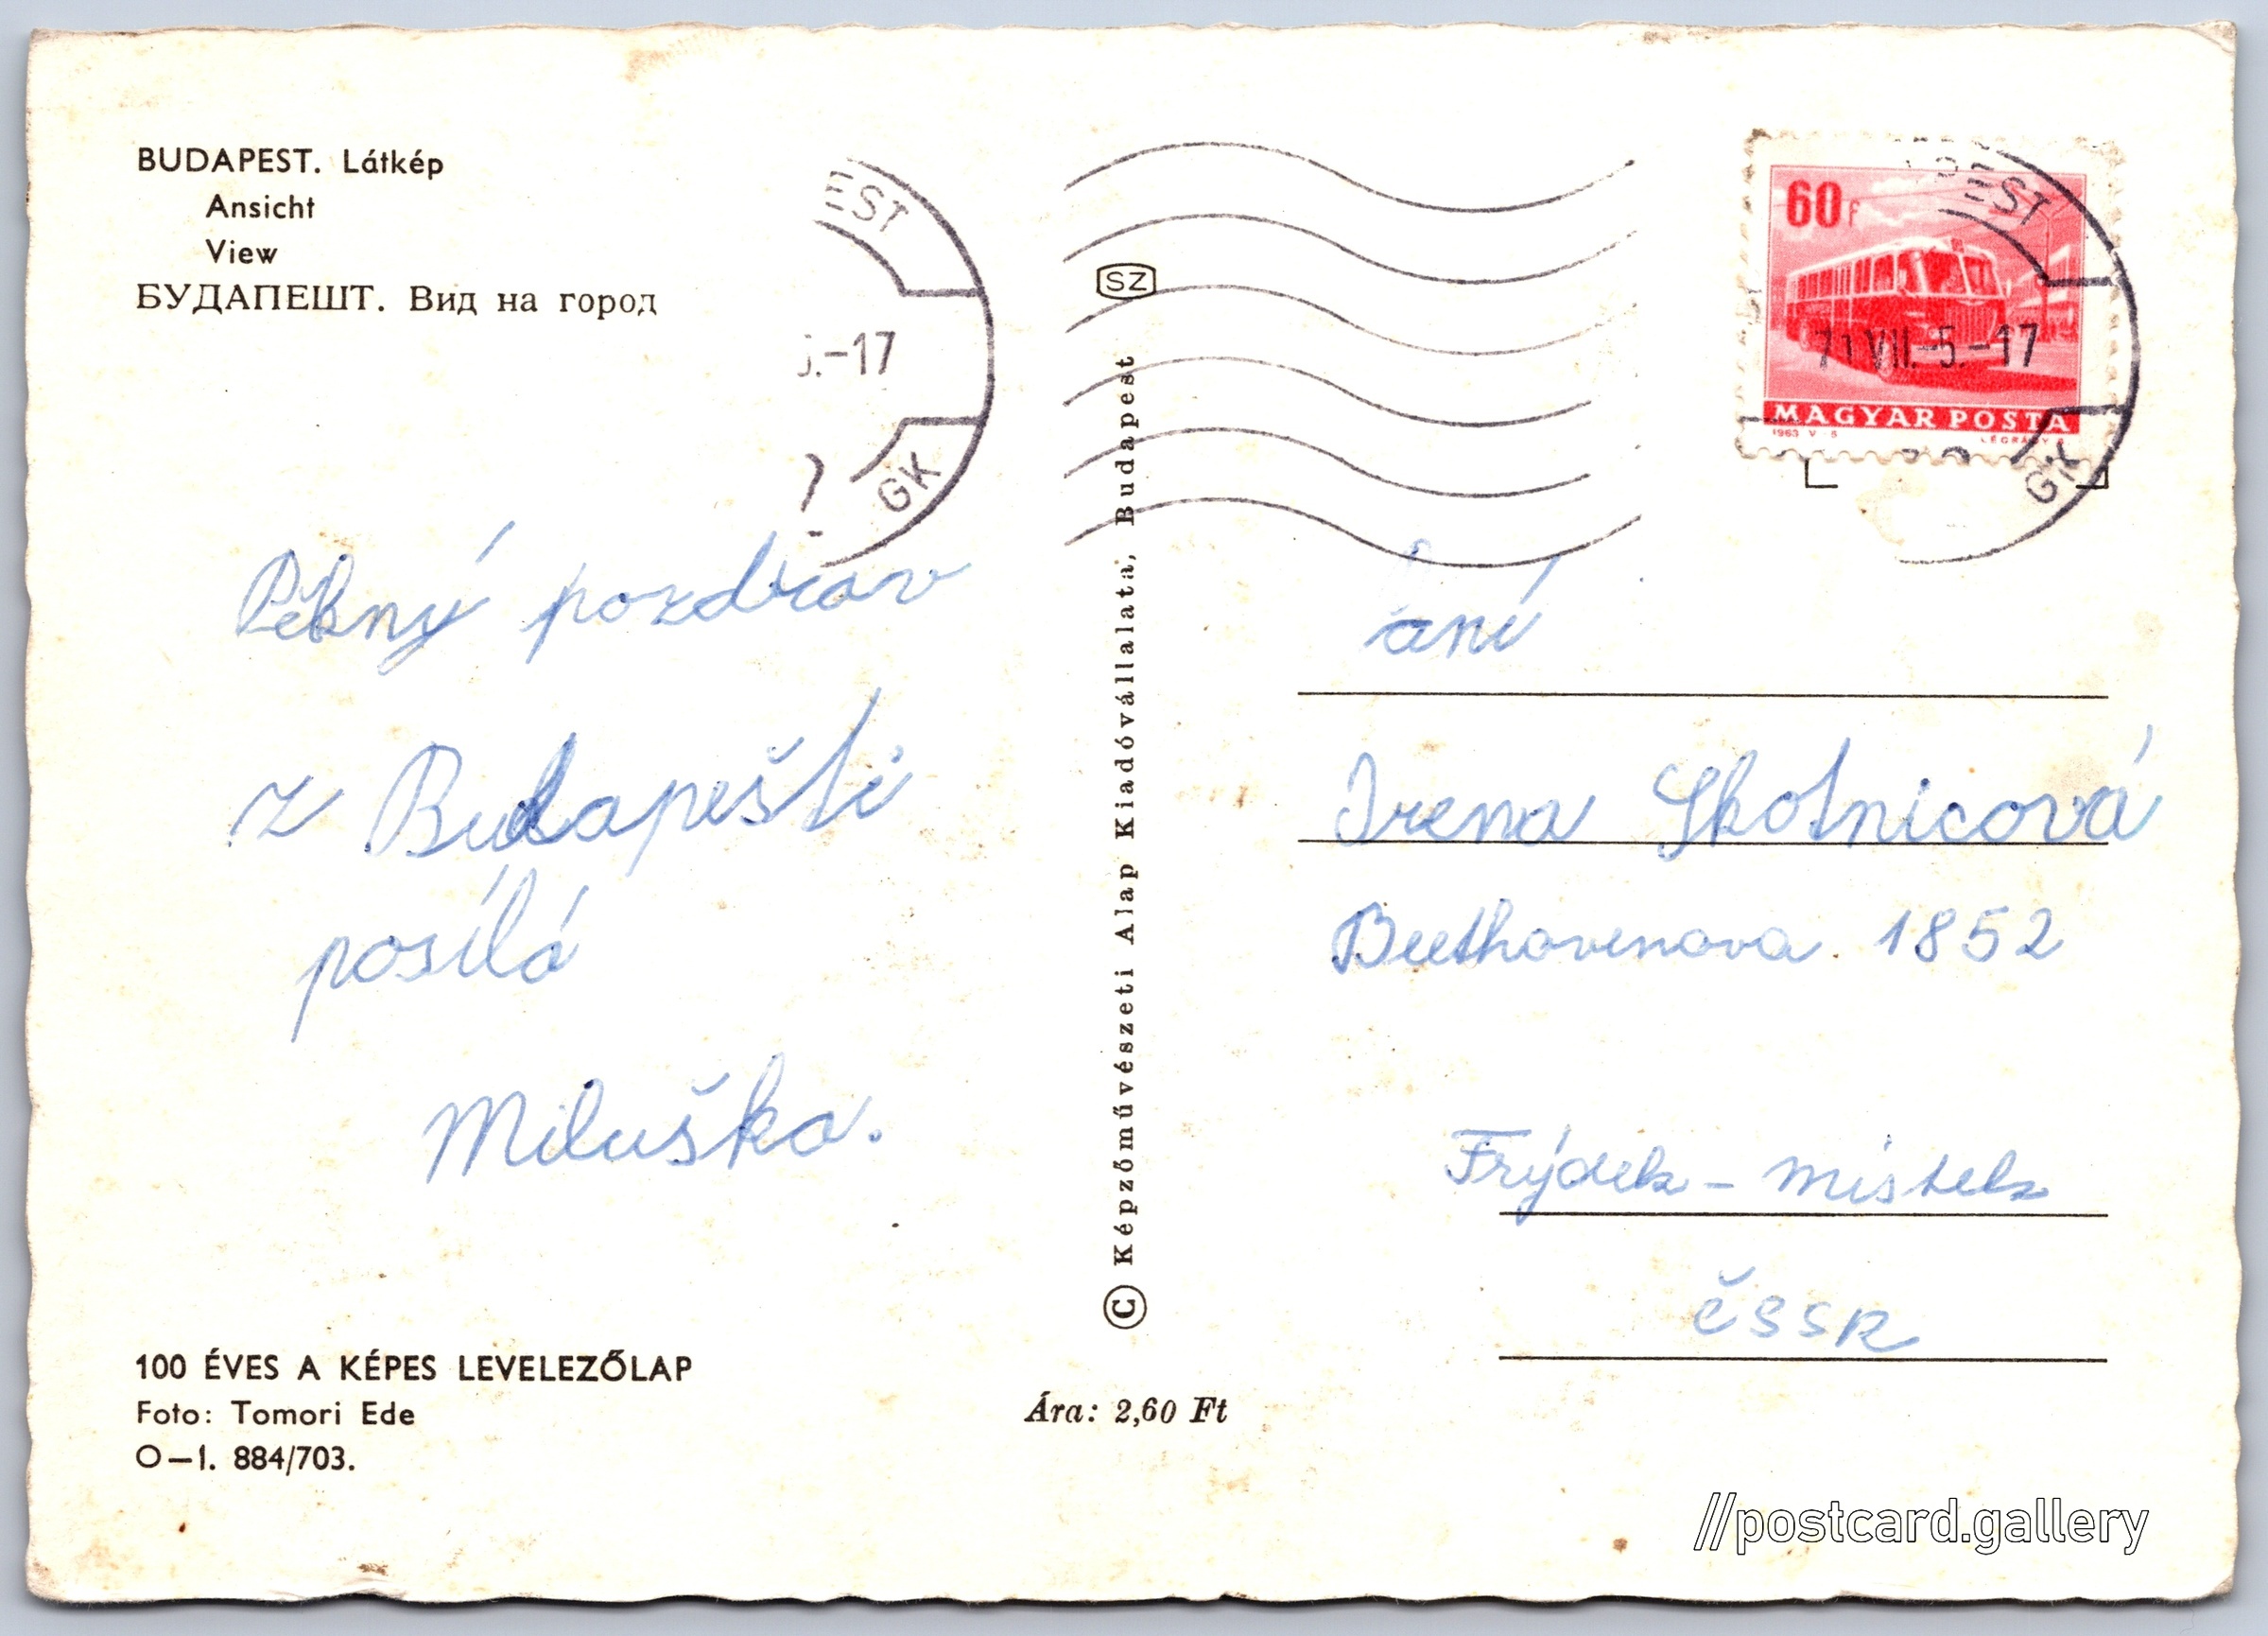 BUDAPEST. Látkép
Ansicht
View
БУДАПЕШТ. Вид на город
EST
-17
GK
SZ
60F
71 VII.-5.-17
MAGYAR POSTA
1963
GK
Pěkný pozdrav
z Budapešti
posílá
Miluška.
100 ÉVES A KÉPES LEVELEZŐLAP
Foto: Tomori Ede
O—I. 884/703.
© Képzőművészeti Alap Kiadóvállalata, Budapest
Ára: 2,60 Ft
Irena Skotnicová
Beethovenova 1852
Frýdek - Místek
ČSSR
//postcard.gallery